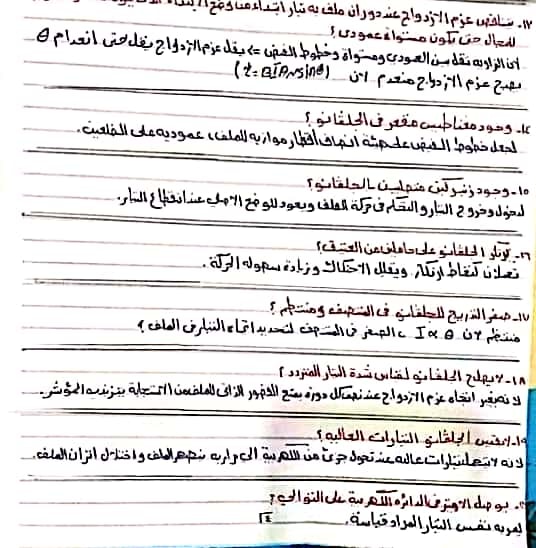 ١٣- يتناقص عزم الازدواج عند دوران ملف به تيار ابتداء من وضع
للمجال حتى يكون مستواه عمودي؟
لان الزاويه تقل بين العمودي ومستواة وخطوط الفيض => يقل عزم الازدواج يقل حتى انعدام θ
يصبح عزم الازدواج منعدم لان (τ = BIAN sin θ)
١٤- وجود مغناطيس مقعر في الجلفانو؟
لجعل خطوط الفيض على هيئة انصاف أقطار موازيه للملف، عموديه على الضلعين.
١٥- وجود زنبركين في الجلفانو؟
لدخول وخروج التيار والتحكم في حركة الملف ويعود للوضع الاصلي عند انقطاع التيار.
١٦- يرتكز الجلفانو على حاملين من العقيق؟
تعملان كنقاط ارتكاز ويقلل الاحتكاك وزيادة سهوله الحركة.
١٧- صفر التدريج للجلفانو في المنتصف ومنتظم؟
منتظم لان I ∝ θ ، الصفر في المنتصف لتحديد اتجاه التيار في الملف؟
١٨- لا يصلح الجلفانو لقياس شدة التيار المتردد؟
لانه يتغير اتجاه عزم الازدواج عند نصف كل دورة يمنع القصور الذاتي للملف من الاستجابة يتذبذب المؤشر.
١٩- لا يقيس الجلفانو التيارات العاليه؟
لانه لا يتحمل تيارات عاليه عند تحول جزئ من الكهربية الى حراريه ينصهر الملف واختلال اتزان الملف.
٢٠- يوصل الاميتر في الدائره الكهربية على التوالي؟
ليمر به نفس التيار المراد قياسة.